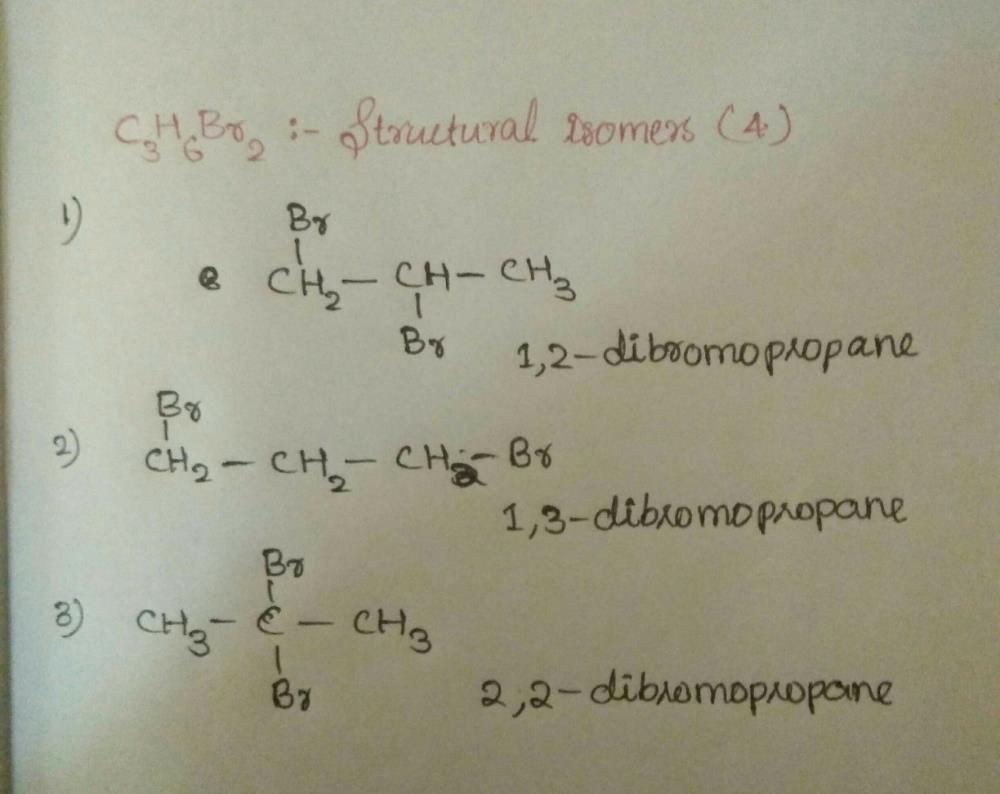 C3H6Br2 :- Structural isomers (4)
1)
Br
CH2 - CH - CH3
Br
1,2-dibromopropane
Br
2) CH2 - CH2 - CH2 - Br
1,3-dibromopropane
Br
3) CH3 - C - CH3
Br
2,2-dibromopropane